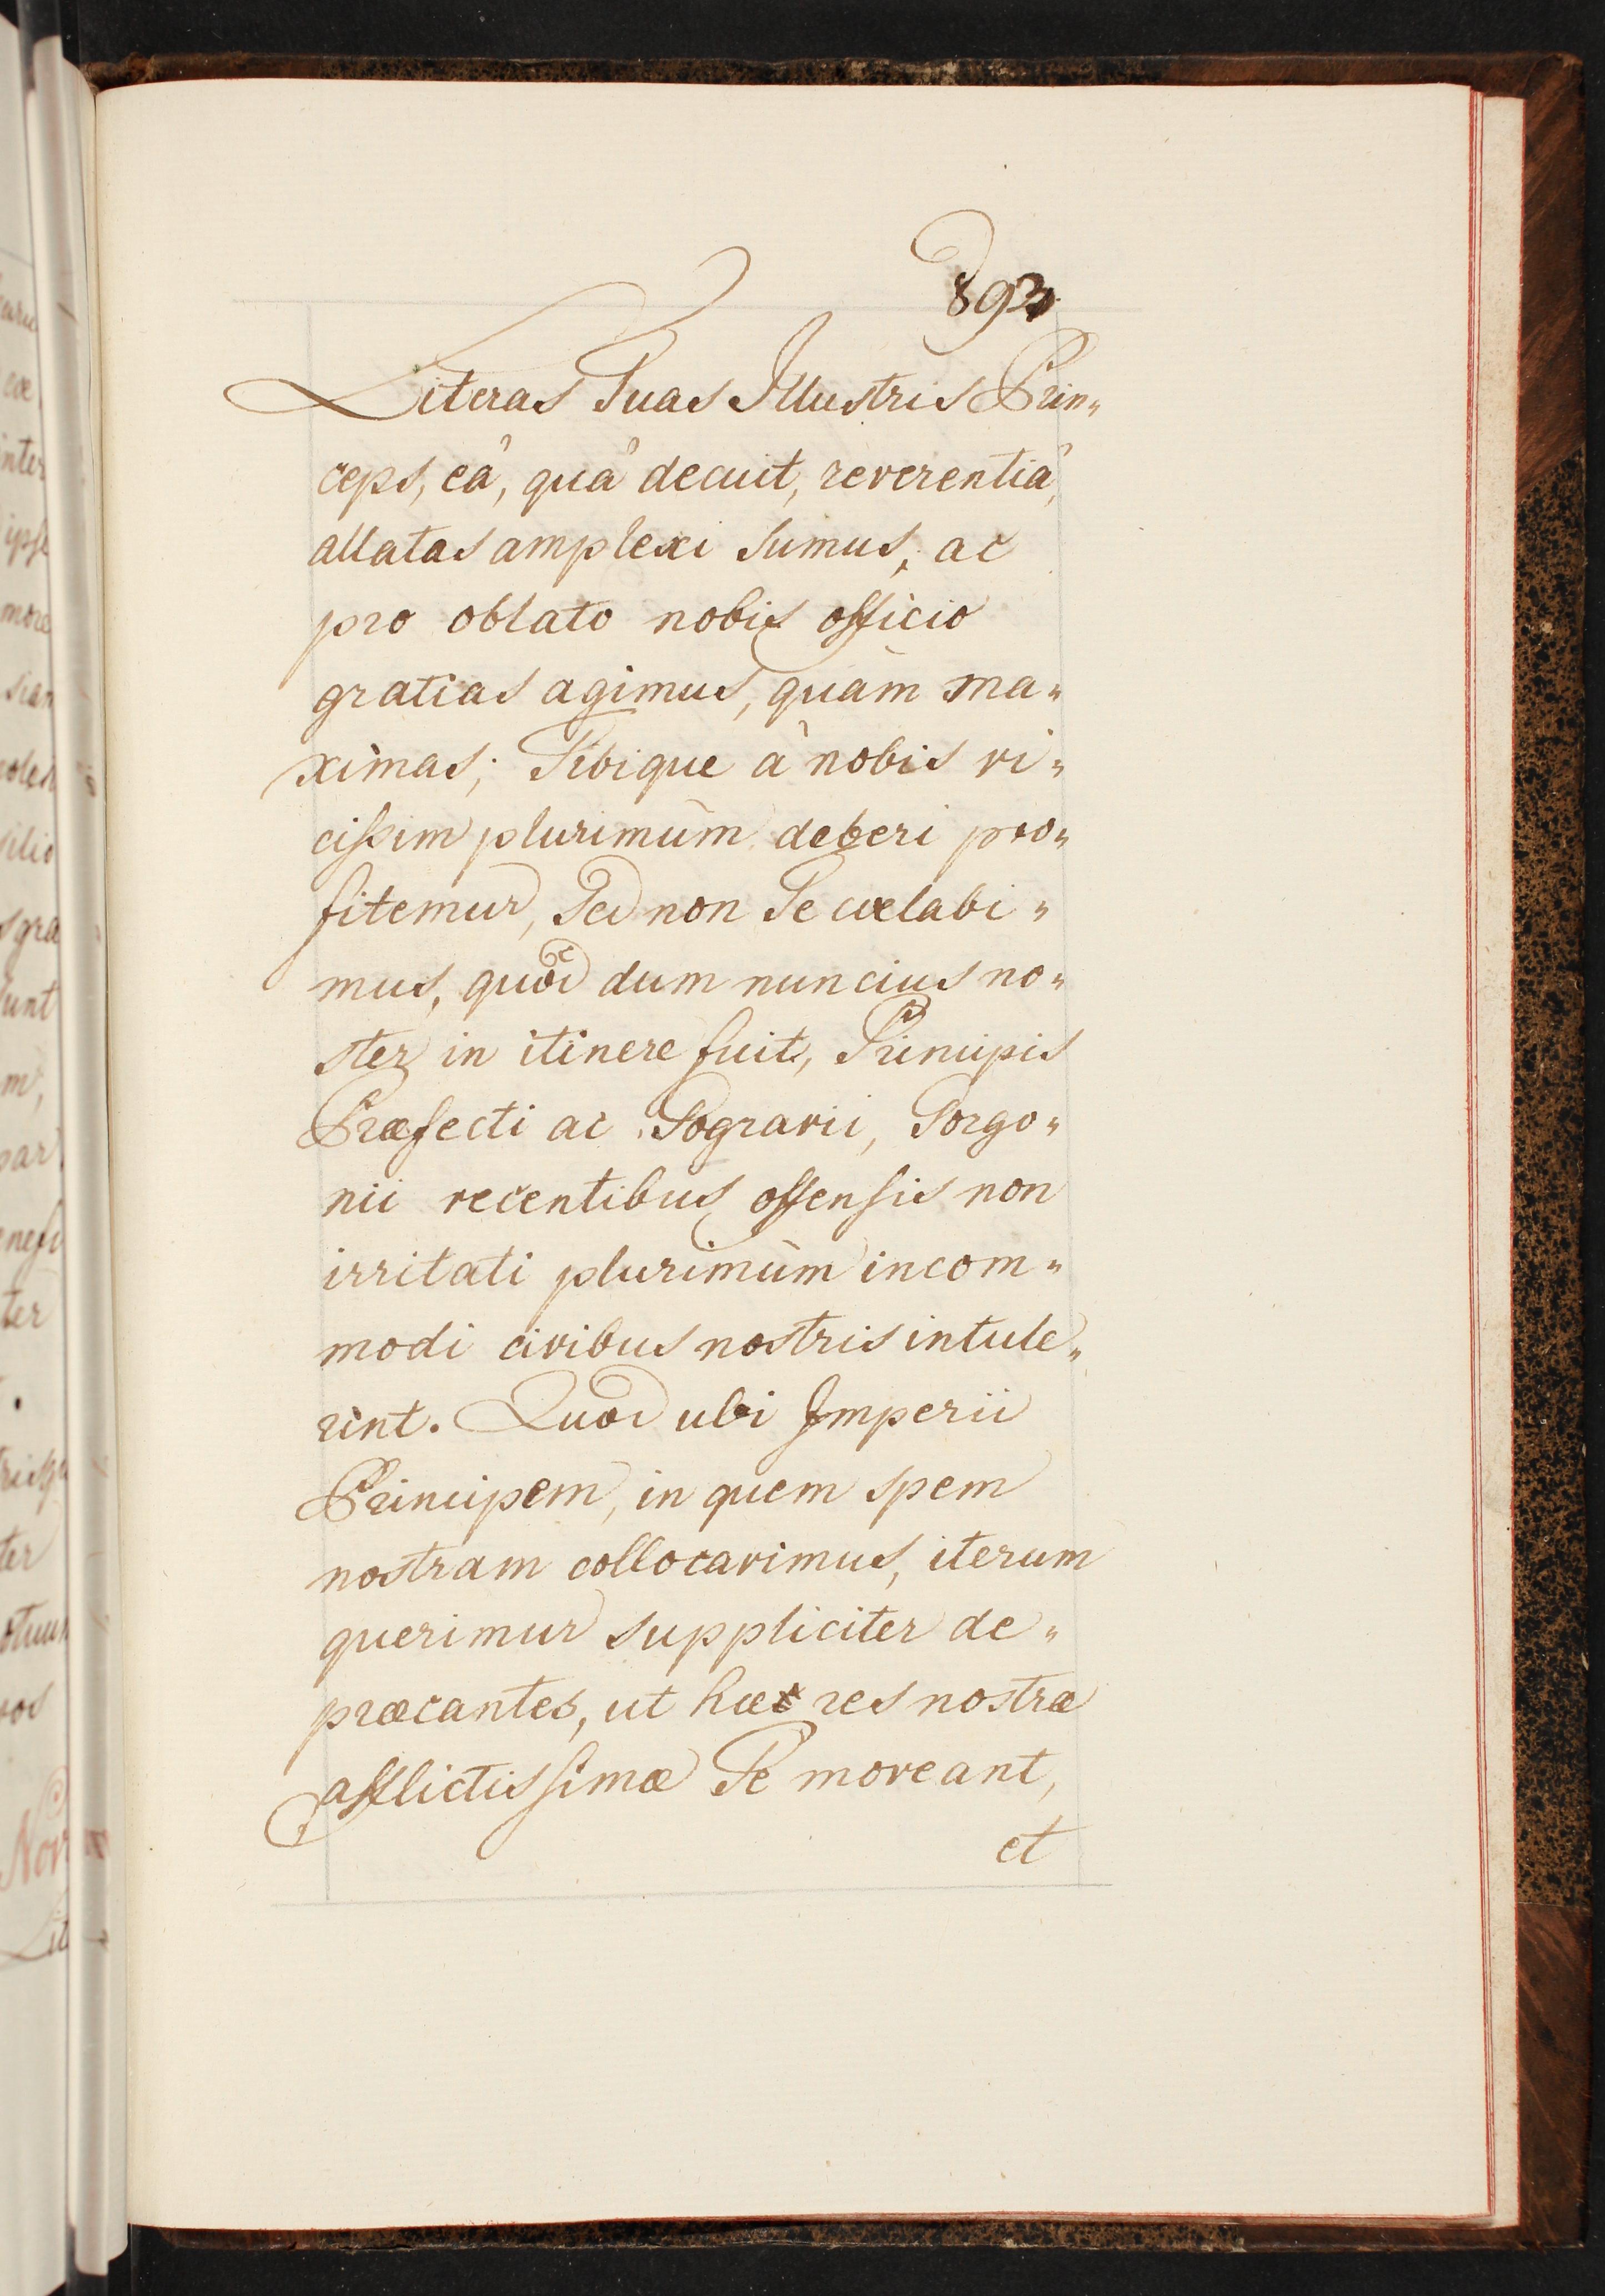 893.
Literas Tuas Illustris Prin„
ceps, eâ, quâ decuit, reverentiâ,
allatas amplexi sumus, ac
pro oblato nobis officio
gratias agimus, quàm ma„
ximas; Tibique à nobis vi„
cissim plurimùm deberi pro„
fitemur, Sed non Te cœlabi„
mus, quòd dum nuncius no„
ster in itinere fuit, Principis
Præfecti ac Togravii, Torgo„
nii recentibus offensis non
irritati plurimùm incom„
modi civibus nostris intule„
rint. Quod ubi Imperii
Principem, in quem spem
nostram collocavimus, iterum
querimur suppliciter de„
præcantes, ut hæ res nostræ
afflictissimæ Te moveant,
et